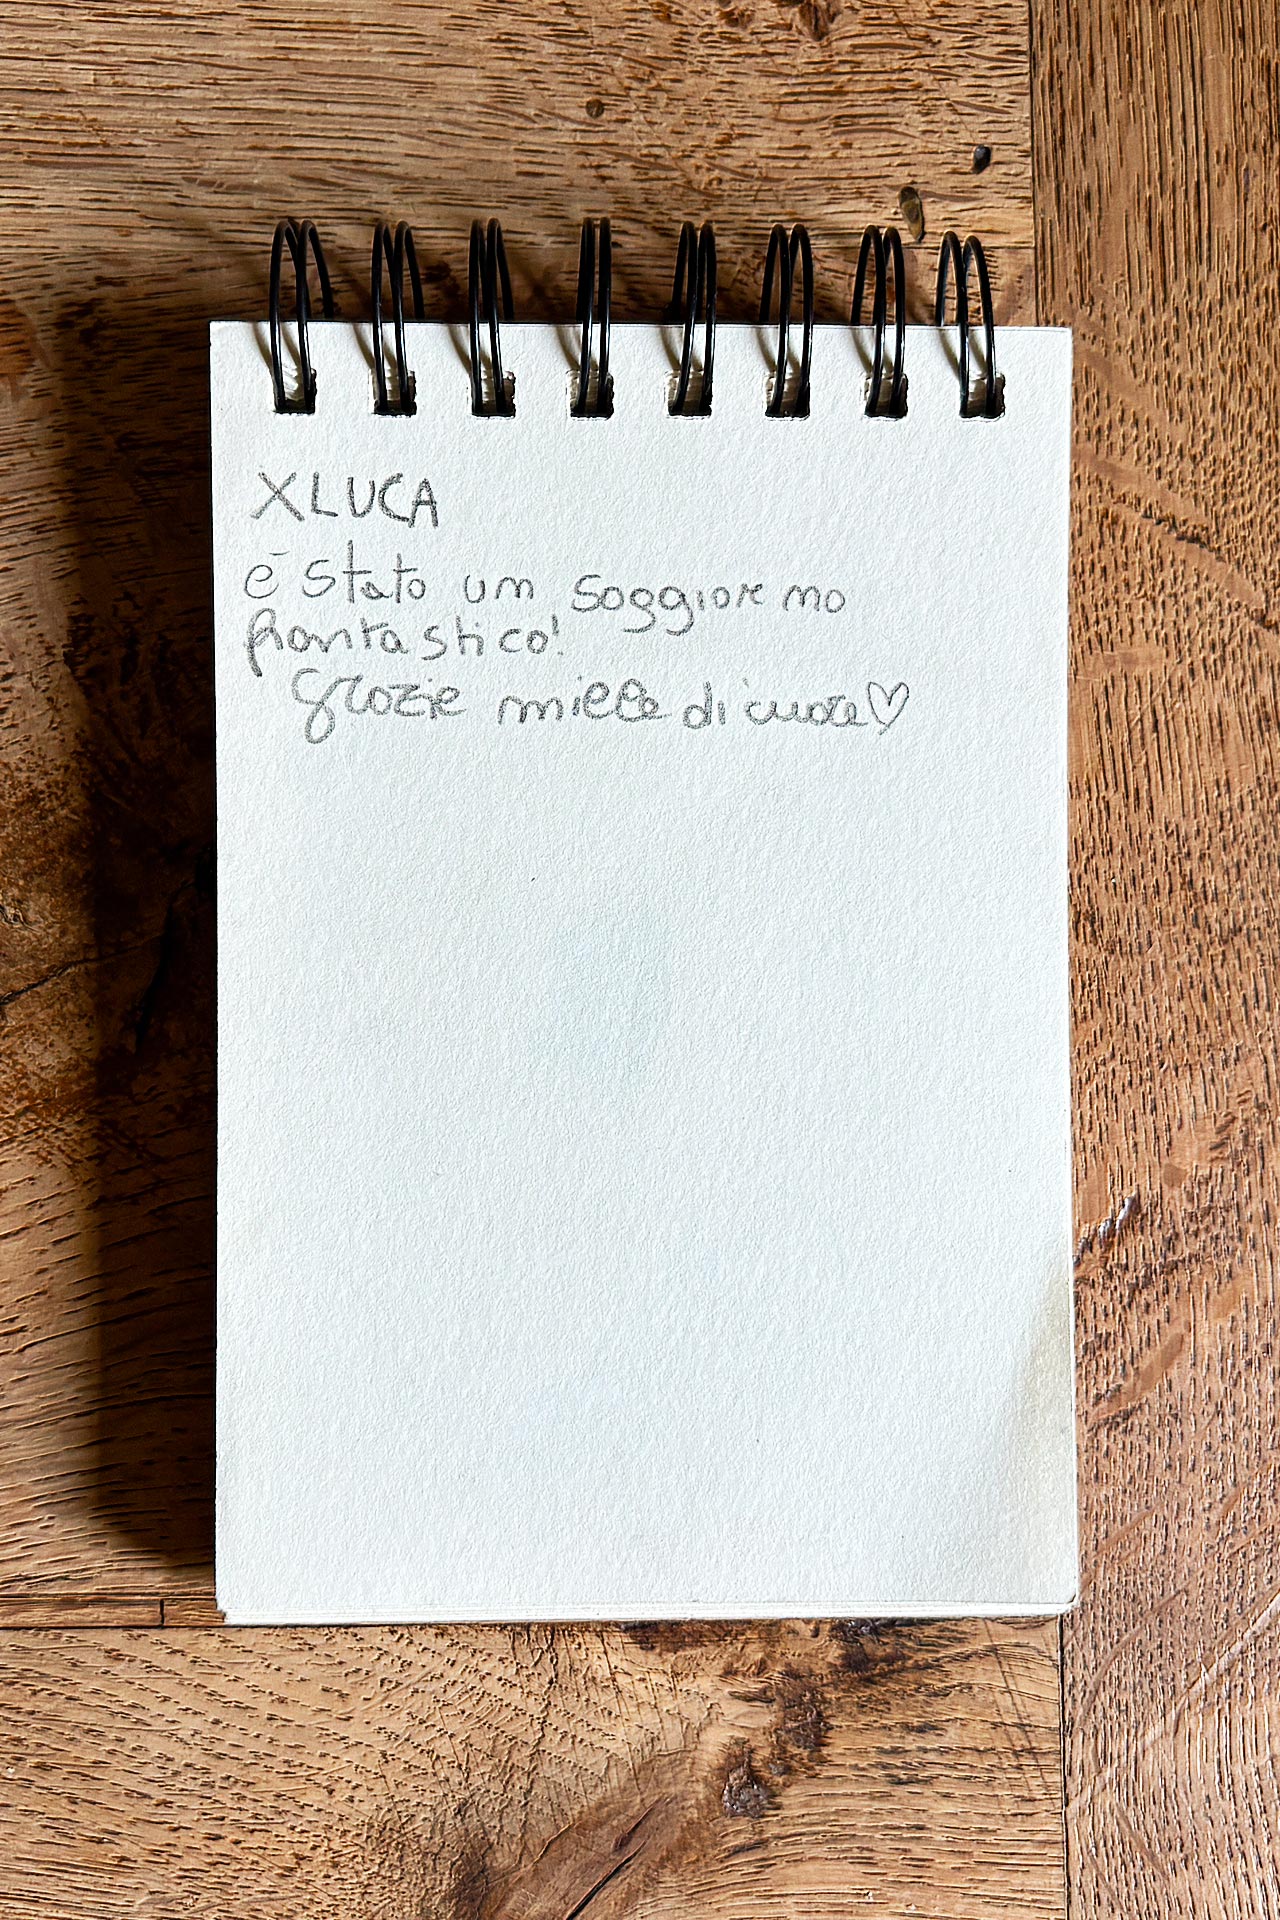 X LUCA
è stato un soggiorno
fantastico!
Grazie mille di cuore♡